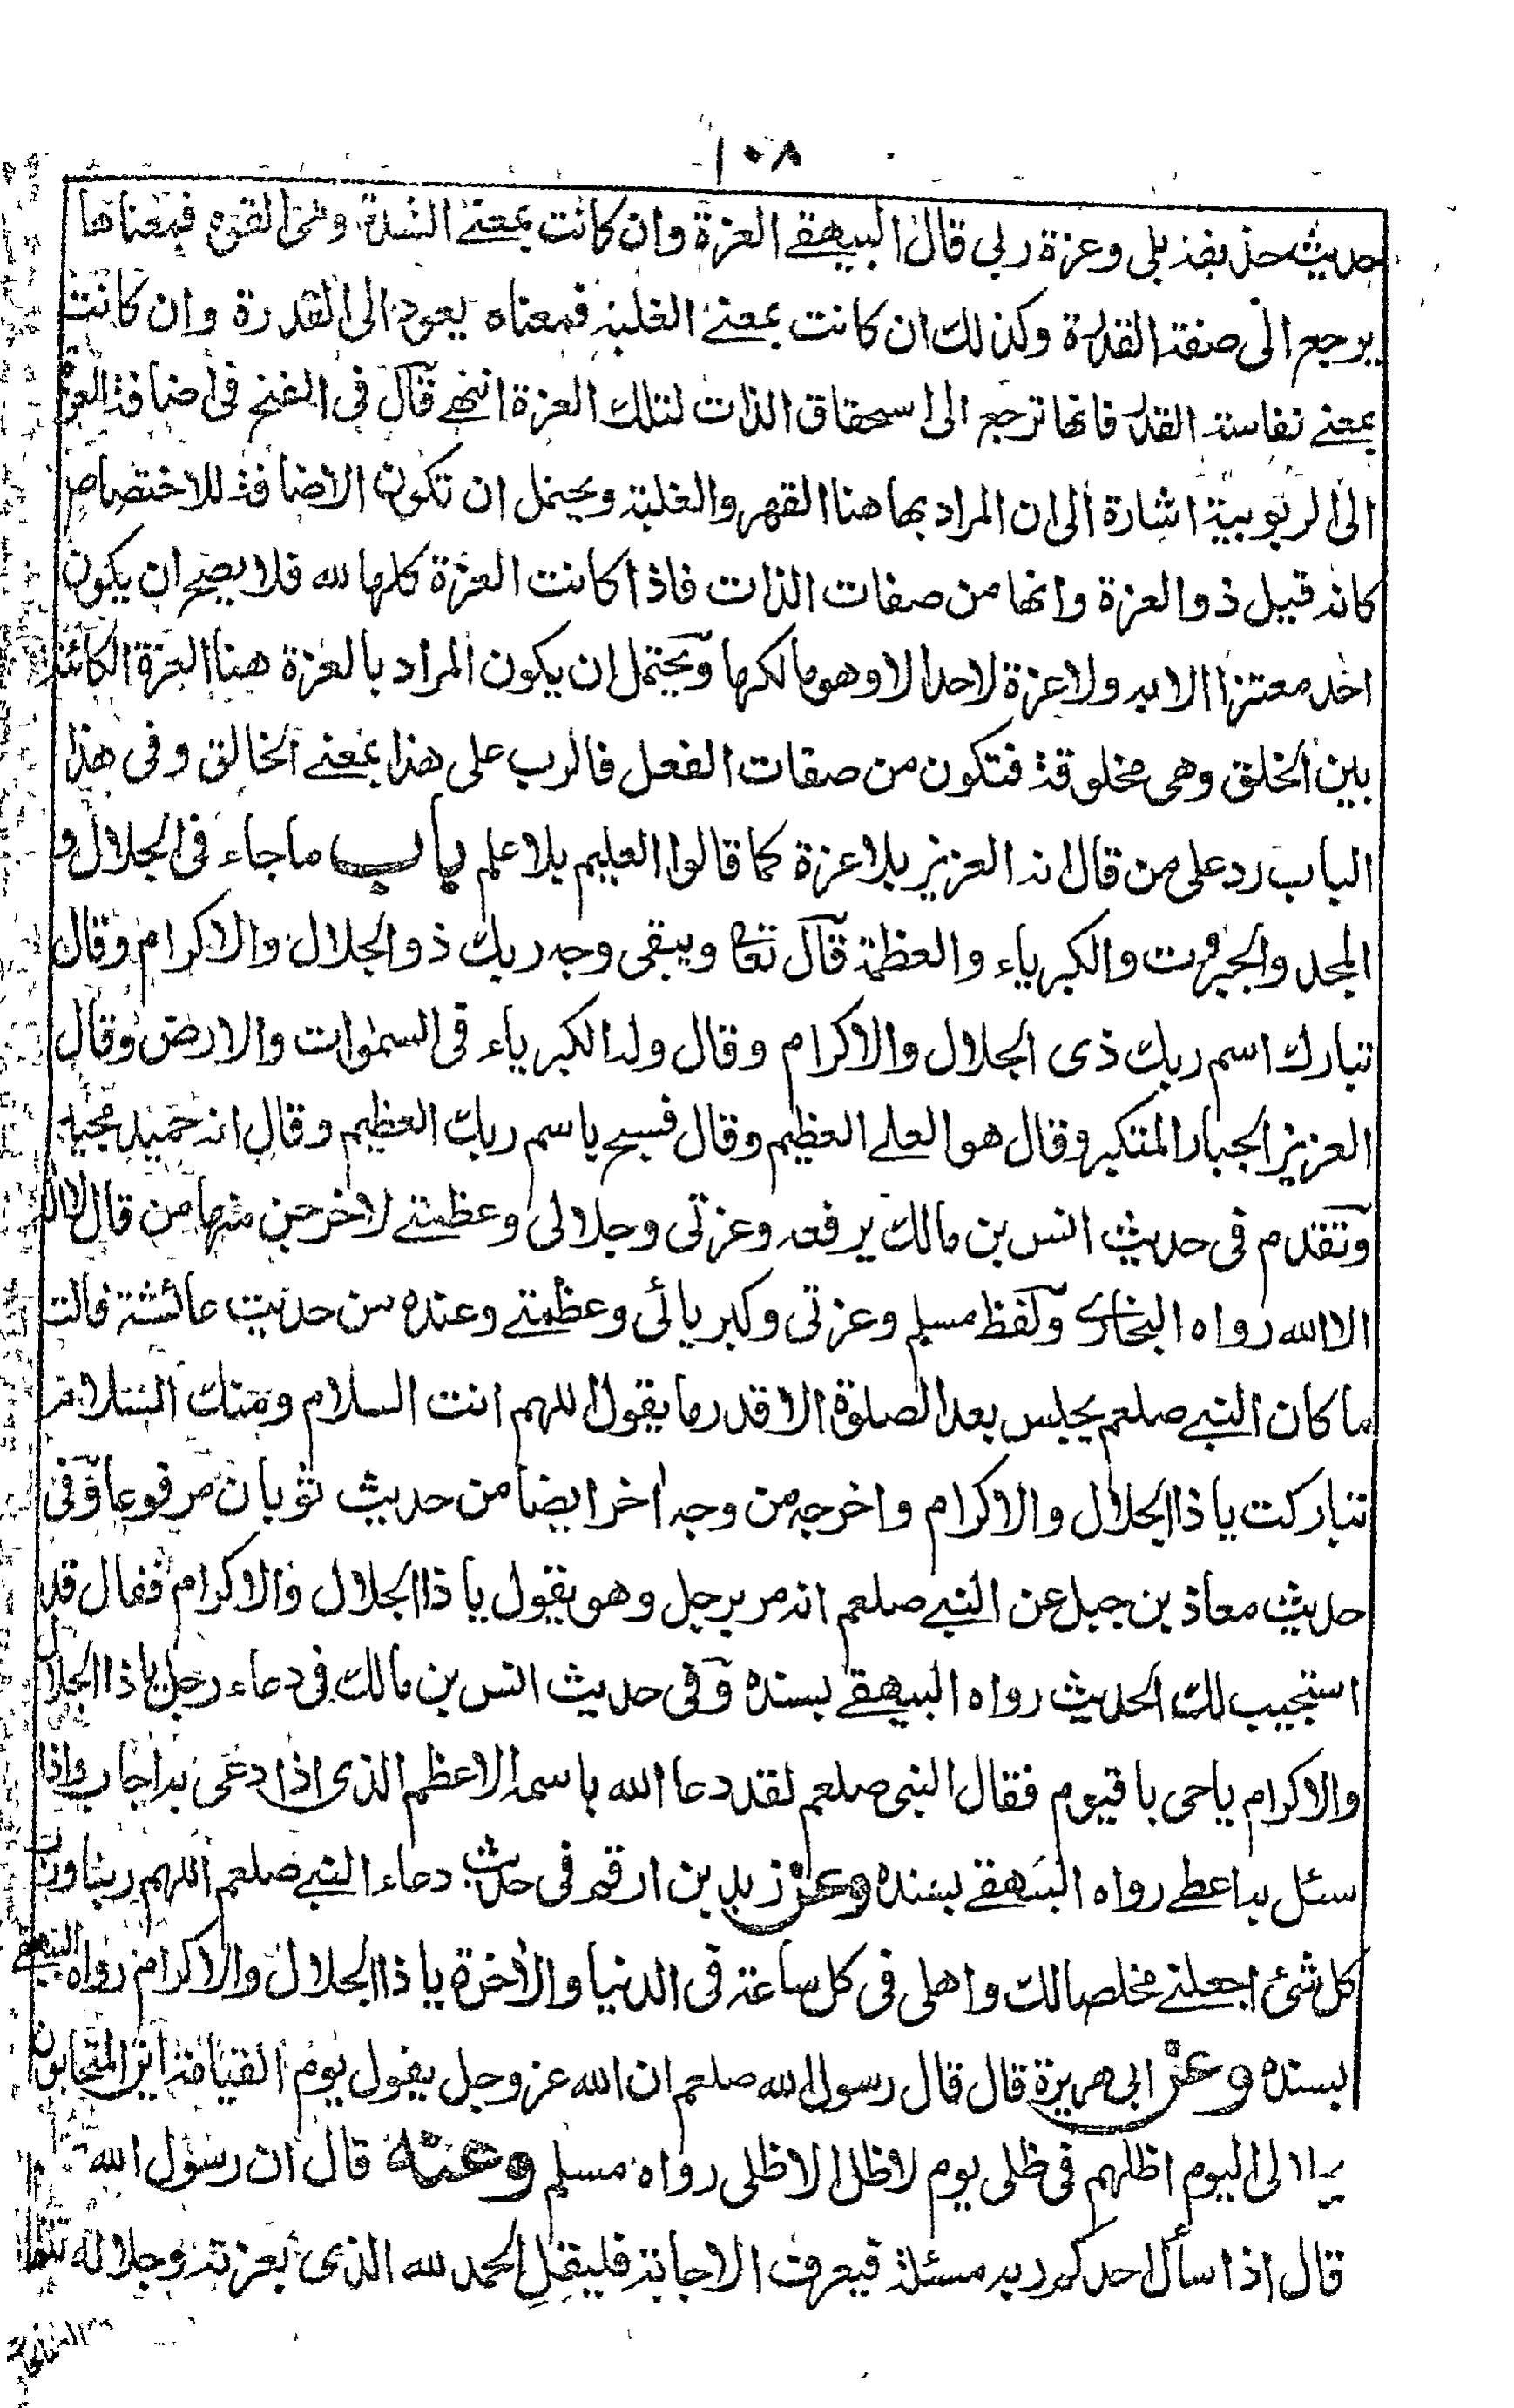 ١٠٨
حديث حذيفة بلى وعزة ربي قال البيهقي العزة وان كانت بمعنى الشدة وهى القوة فمعناها
يرجع الى صفة القدرة وكذلك ان كانت بمعنى الغلبة فمعناه يعود الى القدرة وان كانت
بمعنى نفاسة القدر فانها ترجع الى استحقاق الذات لتلك العزة انتهى قال فى الفتح فى اضافة العزة
الى الربوبية اشارة الى ان المراد بها هنا القهر والغلبة ويحتمل ان تكون الاضافة للاختصاص
كانه قيل ذو العزة وانها من صفات الذات فاذا كانت العزة كلها لله فلا يصح ان يكون
احد معتزا الا به ولا عزة لاحد الا وهو مالكها ويحتمل ان يكون المراد بالعزة هنا العزة الكائنة
بين الخلق وهى مخلوقة فتكون من صفات الفعل فالرب على هذا بمعنى الخالق وفى هذا
الباب رد على من قال انه العزيز بلا عزة كما قالوا العليم بلا علم باب ما جاء فى الجلال و
المجد والجبروت والكبرياء والعظمة قال تعا ويبقى وجه ربك ذو الجلال والاكرام وقال
تبارك اسم ربك ذى الجلال والاكرام وقال وله الكبرياء فى السموات والارض وقال
العزيز الجبار المتكبر وقال هو العلي العظيم وقال فسبح باسم ربك العظيم وقال انه حميد مجيد
وتقدم فى حديث انس بن مالك يرفعه وعزتى وجلالى وعظمتى لاخرجن منها من قال لا اله
الا الله رواه البخارى ولفظ مسلم وعزتى وكبريائى وعظمتى وعنده من حديث عائشة قالت
ما كان النبى صلعم يجلس بعد الصلوة الا قدر ما يقول اللهم انت السلام ومنك السلام
تباركت يا ذا الجلال والاكرام واخرجه من وجه اخر ايضا من حديث ثوبان مرفوعا وفى
حديث معاذ بن جبل عن النبى صلعم انه مر برجل وهو يقول يا ذا الجلال والاكرام فقال قد
استجيب لك الحديث رواه البيهقى بسنده وفى حديث انس بن مالك فى دعاء رجل يا ذا الجلال
والاكرام ياحى ياقيوم فقال النبى صلعم لقد دعا الله باسمه الاعظم الذى اذا دعى به اجاب واذا
سئل به اعطى رواه البيهقى بسنده وعن زيد بن ارقم فى حديث دعاء النبى صلعم اللهم ربنا ورب
كل شئ اجعلنى مخلصا لك واهلى فى كل ساعة فى الدنيا والاخرة يا ذا الجلال والاكرام رواه البيهقى
بسنده وعن ابى هريرة قال قال رسول الله صلعم ان الله عز وجل يقول يوم القيامة اين المتحابون
لجلالى اليوم اظلهم فى ظلى يوم لا ظل الا ظلى رواه مسلم وعنه قال ان رسول الله
قال اذا سأل احدكم ربه مسئلة فيعرف الاجابة فليقل الحمد لله الذى بعزته وجلاله